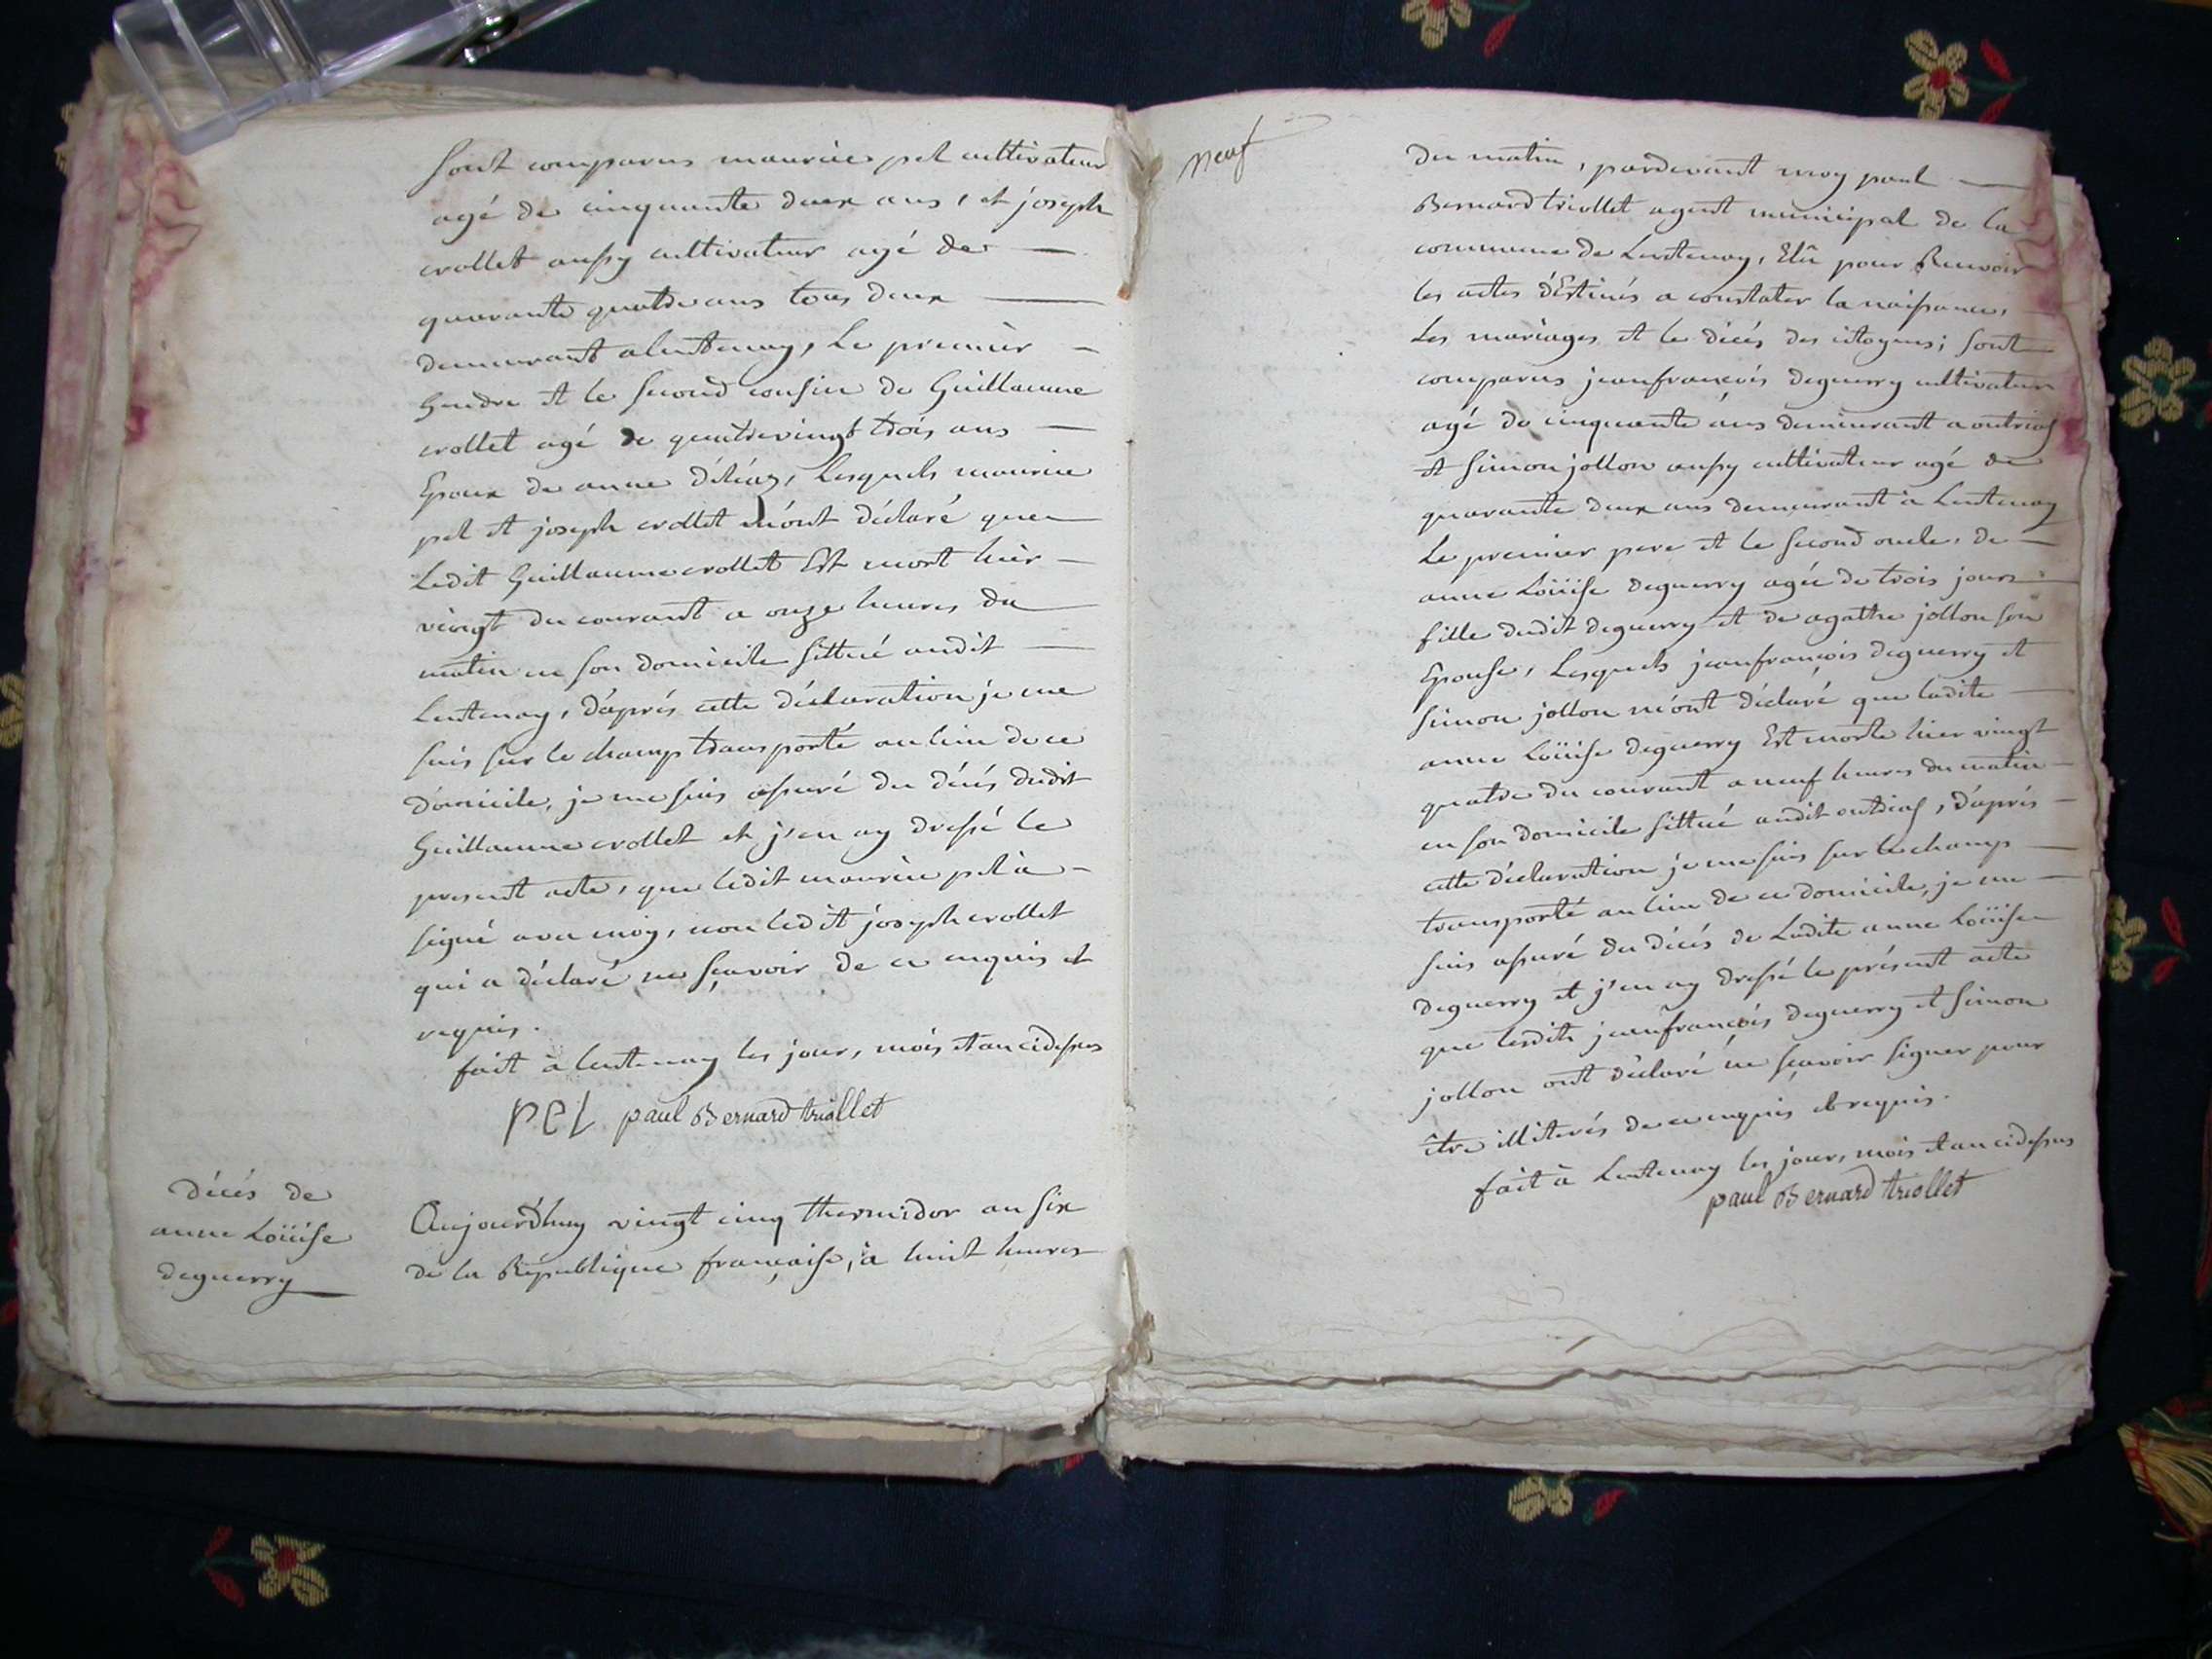 sont comparus maurice pel cultivateur
agé de cinquante deux ans, et joseph
crollet aussy cultivateur agé de
quarante quatre ans tous deux
demeurant a lentenay, le premier
Gendre et le second cousin de Guillaume
crollet agé de quatrevingt trois ans
Epoux de anne deléaz, lesquels maurice
pel et joseph crollet m'ont déclaré que
ledit Guillaume crollet Est mort hièr
vingt du courant a onze heures du
matin en son domicile sittué audit
Lentenay, d'aprés cette déclaration je me
suis sur le champ transporté au lieu de ce
domicile, je me suis assuré du décés dudit
Guillaume crollet et j'en ay dressé le
present acte, que ledit maurice pel à
signé avec moy, non ledit joseph crollet
qui a déclaré ne sçavoir de ce enquis et
requis.
fait à lentenay les jour, mois et an cidessus
pel paul Bernard triollet
décés de
anne Loüise
deguerry
Aujourd'huy vingt cinq thermidor an six
de la République française, à huit heures
neuf
du matin, pardevant moy paul
Bernard triollet agent municipal de la
commune de Lentenay, Elû pour Recevoir
les actes déstinés a constater la naissance,
les mariages et le décés des citoyens; sont
comparus jeanfrançois deguerry cultivateur
agé de cinquante ans demeurant a outriaz
et simon jollon aussy cultivateur agé de
quarante deux ans demeurant à Lentenay
Le premier pere et le second oncle, de
anne Loüise deguerry agée de trois jours
fille dudit deguerry et de agathe jollon son
Epouse, Lesquels jeanfrançois deguerry et
simon jollon m'ont déclaré que ladite
anne Loüise deguerry Est morte hier vingt
quatre du courant a neuf heures du matin
en son domicile sittué audit outriaz, d'aprés
cette déclaration je me suis sur le champ
transporté au lieu de ce domicile, je me
suis assuré du décés de Ladite anne Loüise
deguerry et j'en ay dressé le présent acte
que lesdits jeanfrançois deguerry et Simon
jollon ont déclaré ne sçavoir signer pour
être illiterés de ce enquis et requis.
fait à Lentenay les jour, mois et an cidessus
paul Bernard triollet